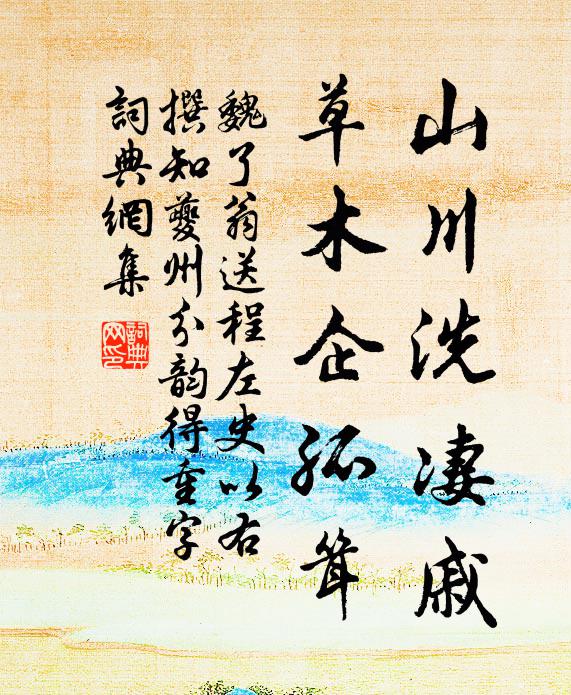 山川洗凄戚
草木企孤耸
魏了翁送程左史以右
撰知夔州分韵得重字
詞典網集
詞典
网印